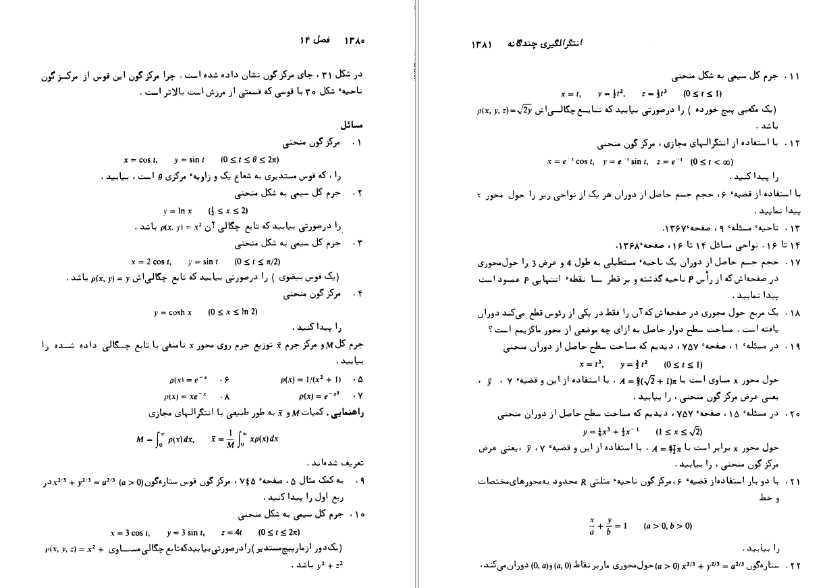 ۱۳۸۰ فصل ۱۴
در شکل ۳۱، جای مرکز گون نشان داده شده است. چرا مرکز گون این قوس از مرکز گون
ناحیهٔ شکل ۳۰ با قوسی که قسمتی از مرزش است بالاتر است.
مسائل
۱. مرکز گون منحنی
x = cos t, y = sin t (0 ≤ t ≤ 2π)
را، که قوس مستدیری به شعاع یک و زاویهٔ مرکزی θ است، بیابید.
۲. جرم کل سیمی به شکل منحنی
y = ln x (½ ≤ x ≤ 2)
را درصورتی بیابید که تابع چگالی آن ρ(x, y) = x² باشد.
۳. جرم کل سیمی به شکل منحنی
x = 2 cos t, y = sin t (0 ≤ t ≤ π/2)
(یک قوس بیضوی) را درصورتی بیابید که تابع چگالی‌اش ρ(x, y) = y باشد.
۴. مرکز گون منحنی
y = cosh x (0 ≤ x ≤ ln 2)
را پیدا کنید.
جرم کل M و مرکز جرم x̄ توزیع جرم روی محور x نامنفی با تابع چگالی داده شده را
بیابید.
۵. ρ(x) = 1/(x² + 1) ۶. ρ(x) = e⁻ˣ
۷. ۸. ρ(x) = xe⁻ˣ
راهنمایی. کمیات M و x̄ به طور طبیعی با انتگرالهای مجازی
M = ∫₀^∞ ρ(x) dx, x̄ = 1/M ∫₀^∞ xρ(x) dx
تعریف شده‌اند.
۹. به کمک مثال ۵، صفحهٔ ۷۴۵، مرکز گون قوس ستاره‌گون x^{2/3} + y^{2/3} = a^{2/3} (a > 0) در
ربع اول را پیدا کنید.
۱۰. جرم کل سیمی به شکل منحنی
x = 3 cos t, y = 3 sin t, z = 4t (0 ≤ t ≤ 2π)
(یک دور از مارپیچ مستدیر) را درصورتی بیابید که تابع چگالی مساوی ρ(x, y, z) = x² +
y² + z² باشد.
انتگرالگیری چندگانه ۱۳۸۱
۱۱. جرم کل سیمی به شکل منحنی
x = t, y = ½t², z = ⅓t³ (0 ≤ t ≤ 1)
(یک مکعبی پیچ خورده) را درصورتی بیابید که تابع چگالی‌اش ρ(x, y, z) = √2y
باشد.
۱۲. با استفاده از انتگرالهای مجازی، مرکز گون منحنی
x = e⁻ᵗ cos t, y = e⁻ᵗ sin t, z = e⁻ᵗ (0 ≤ t < ∞)
را پیدا کنید.
با استفاده از قضیهٔ ۶، حجم جسم حاصل از دوران هر یک از نواحی زیر را حول محور x
پیدا نمایید.
۱۳. ناحیهٔ مسئلهٔ ۹، صفحهٔ ۱۳۶۷.
۱۴ تا ۱۶. نواحی مسائل ۱۴ تا ۱۶، صفحهٔ ۱۳۶۸.
۱۷. حجم جسم حاصل از دوران یک ناحیهٔ مستطیلی به طول 4 و عرض 3 را حول محوری
در صفحه‌اش که از رأس P ناحیه گذشته و بر قطر با نقطهٔ انتهایی P عمود است
پیدا نمایید.
۱۸. یک مربع حول محوری در صفحه‌اش که آن را فقط در یکی از رئوس قطع می‌کند دوران
یافته است. مساحت سطح دوار حاصل به ازای چه موضعی از محور ماکزیمم است؟
۱۹. در مسئلهٔ ۱، صفحهٔ ۷۵۷، دیدیم که مساحت سطح حاصل از دوران منحنی
x = t³, y = (0 ≤ t ≤ 1)
حول محور x مساوی است با (√2 + 1)π. با استفاده از این و قضیهٔ ۷، ȳ،
یعنی عرض مرکز گون منحنی، را بیابید.
۲۰. در مسئلهٔ ۱۵، صفحهٔ ۷۵۷، دیدیم که مساحت سطح حاصل از دوران منحنی
(1 ≤ x ≤ √2)
حول محور x برابر است با. با استفاده از این و قضیهٔ ۷، ȳ، یعنی عرض
مرکز گون منحنی، را بیابید.
۲۱. با دو بار استفاده از قضیهٔ ۶، مرکز گون ناحیهٔ مثلثی R محدود به محورهای مختصات
و خط
x/a + y/b = 1 (a > 0, b > 0)
را بیابید.
۲۲. ستاره‌گون x^{2/3} + y^{2/3} = a^{2/3} (a > 0) حول محوری مار بر نقاط (a, 0) و (0, a) دوران می‌کند.